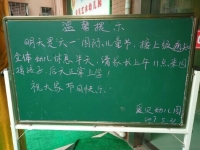 温馨提示
明天是六一国际儿童节,接上级通知
全体幼儿休息半天,请家长上午11点来园
接孩子,后天正常上课!
祝大家节日快乐!
幼儿园